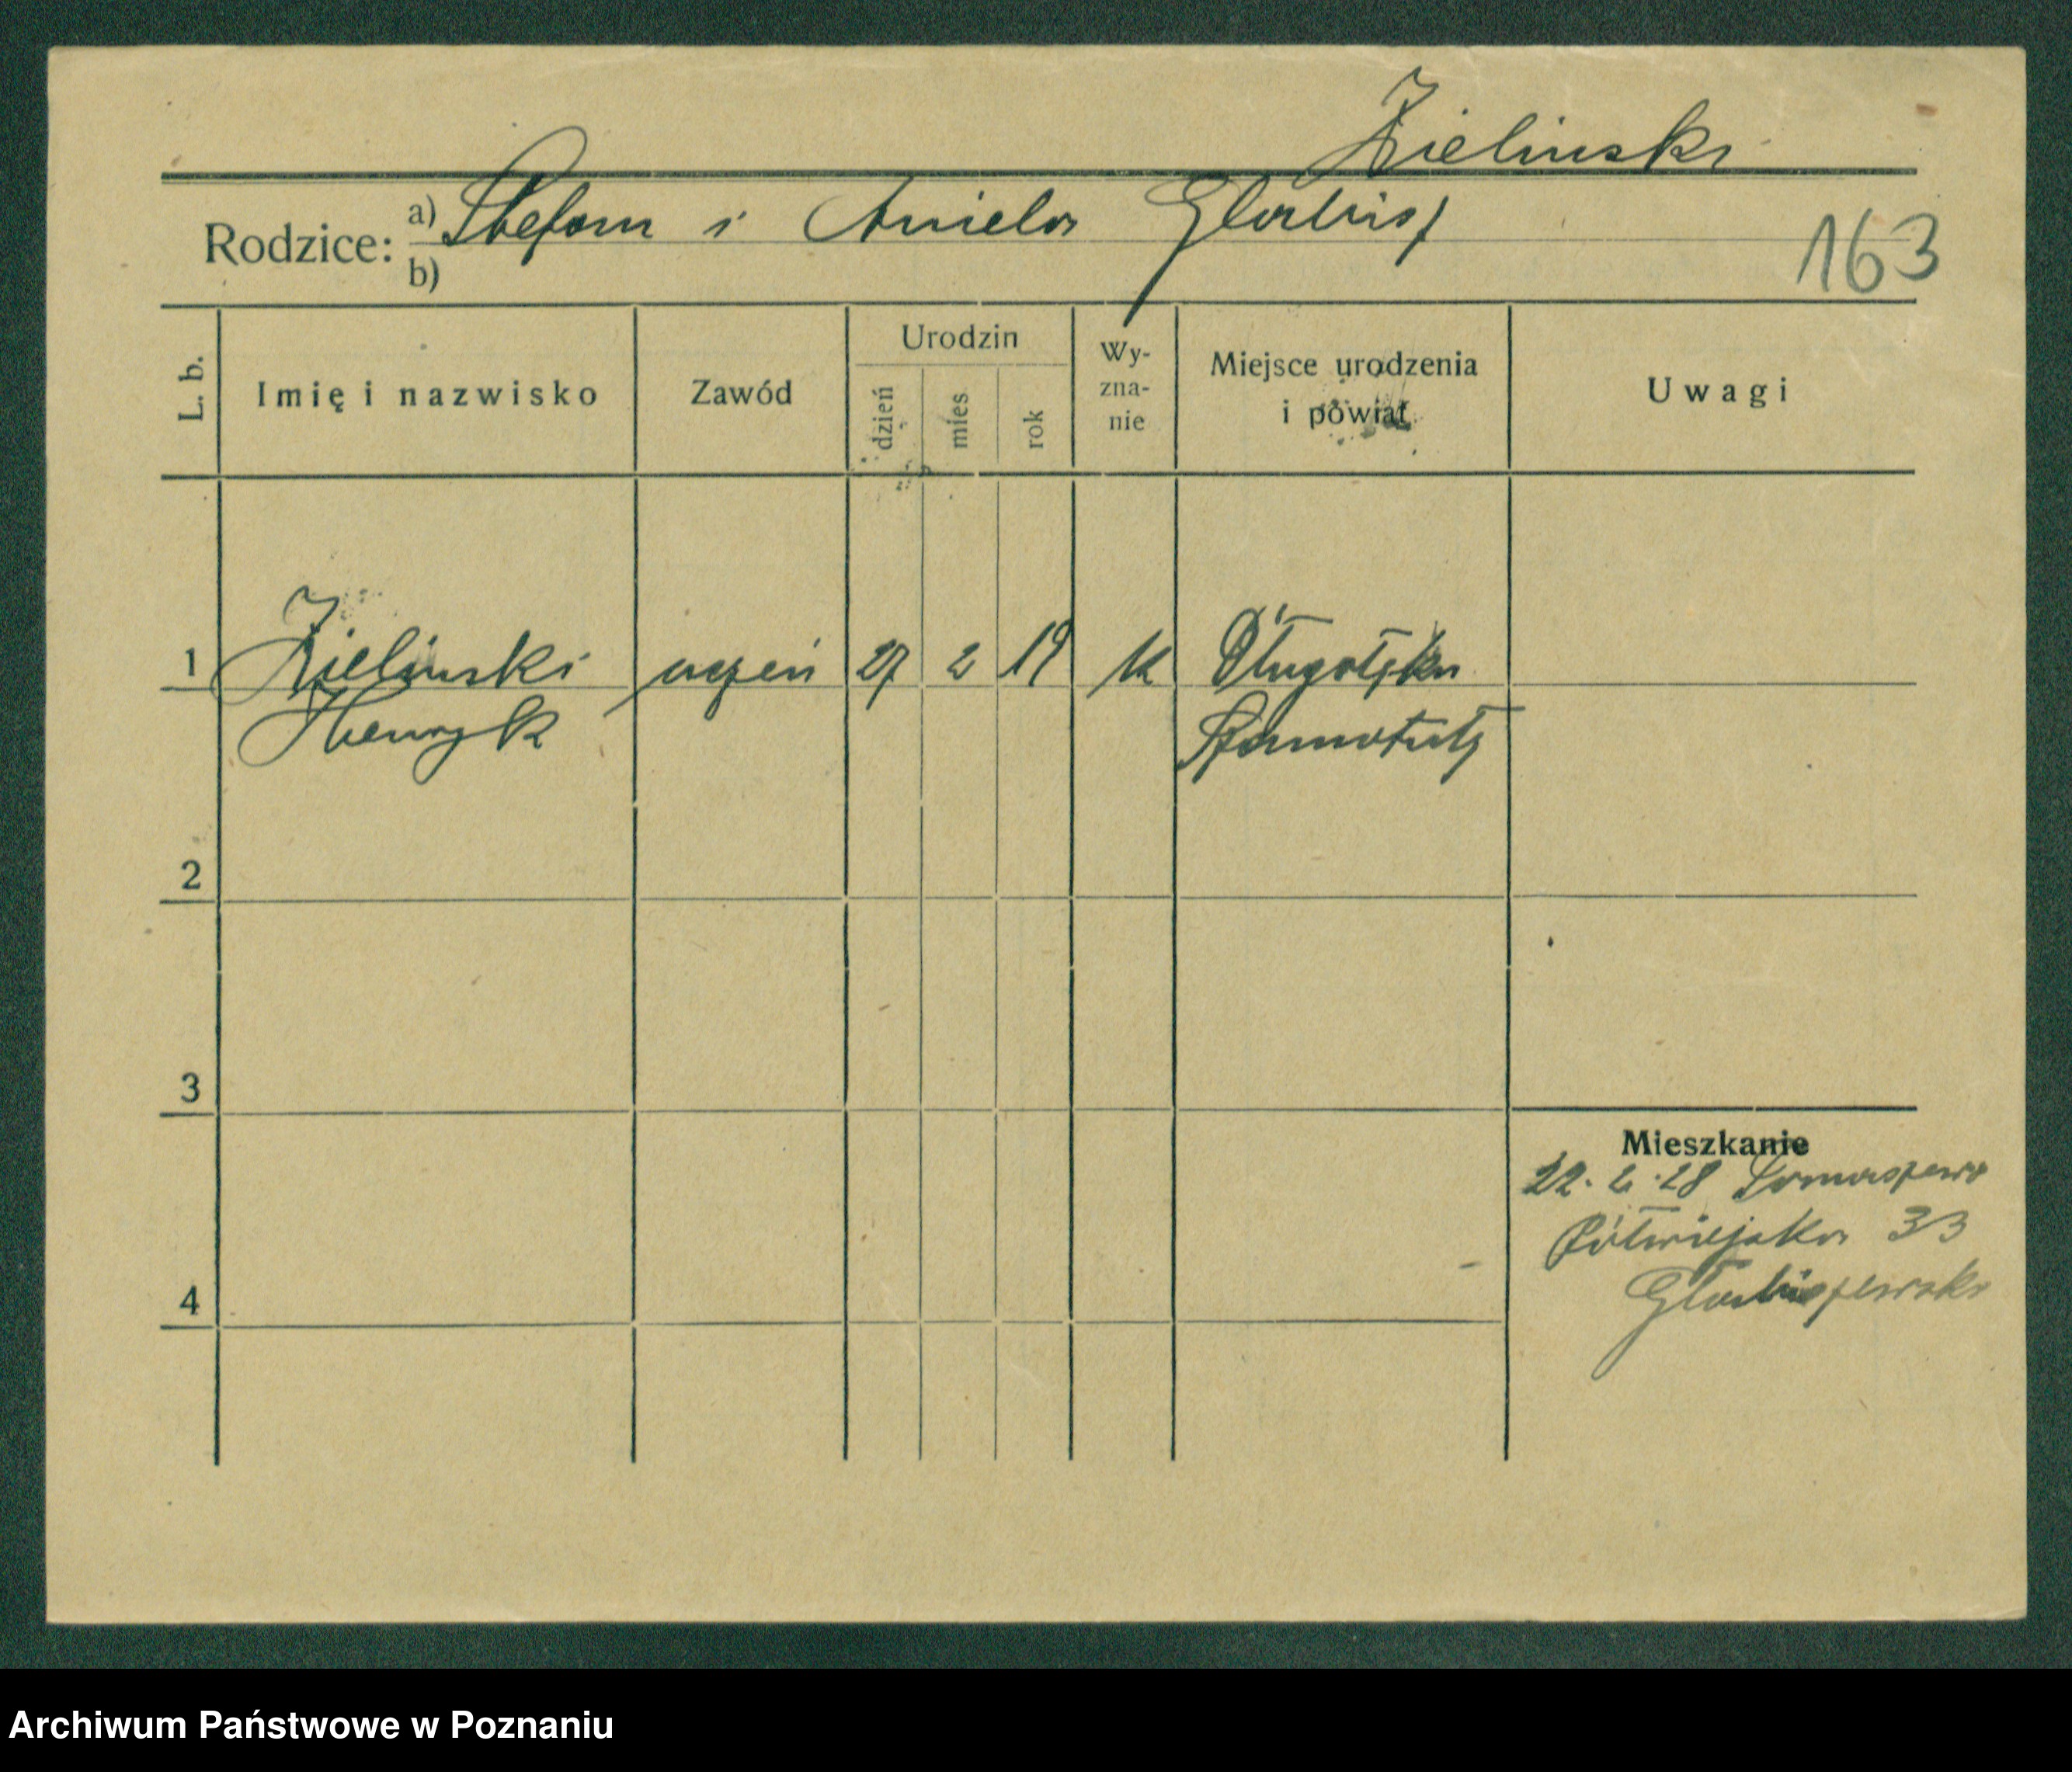 Zielinski
Rodzice: a) Stefan i Aniela Glabisz
b)
163
L. b.
Imię i nazwisko
Zawód
Urodzin
dzień
mies.
rok
Wy-
zna-
nie
Miejsce urodzenia
i powiat
Uwagi
1 Zielinski uczeń 27 2 19 k
Henryk Szamotuły
2
3
4
Mieszkanie
22. 2. 28
Półwiejska 33
Archiwum Państwowe w Poznaniu